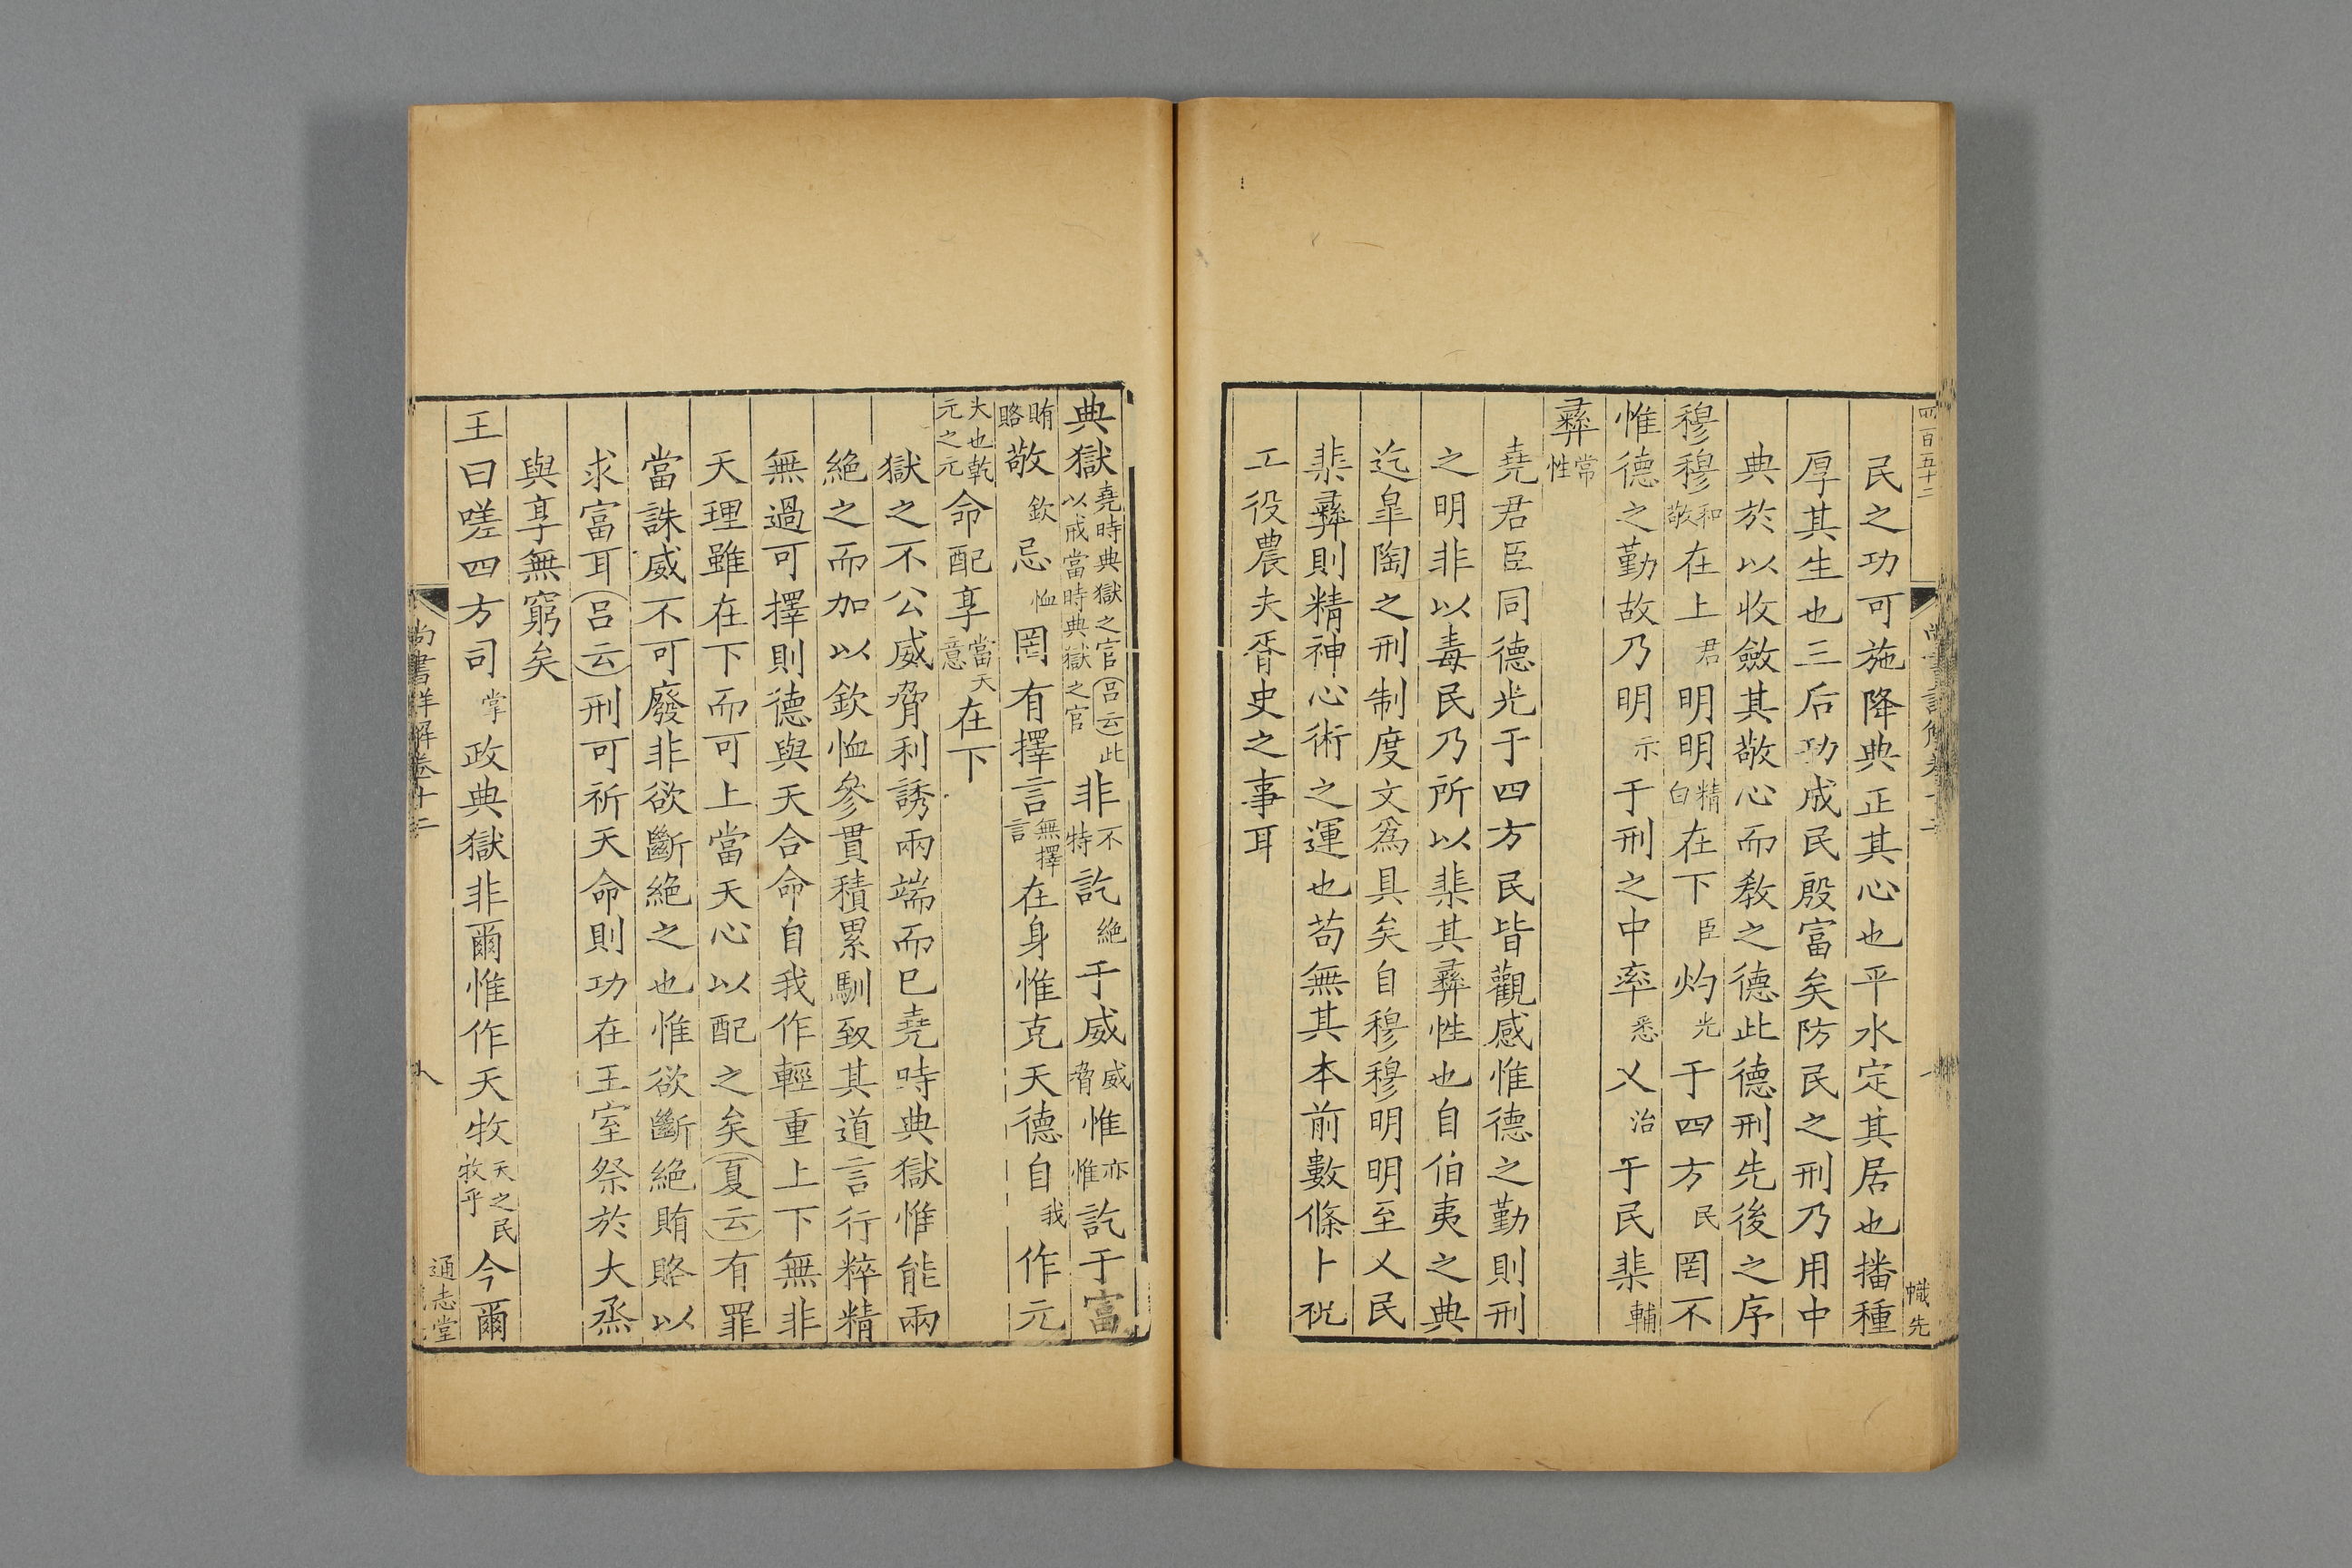 四百五十二
幟先
民之功可施降典正其心也平水定其居也播種
厚其生也三后功成民殷富矣防民之刑乃用中
典於以收斂其敬心而教之德此德刑先後之序
穆穆和敬在上君明明精白在下臣灼光于四方民罔不
惟德之勤故乃明示于刑之中率悉乂治于民棐輔
彝常性
堯君臣同德光于四方民皆觀感惟德之勤則刑
之明非以毒民乃所以棐其彝性也自伯夷之典
迄臯陶之刑制度文爲具矣自穆穆明明至乂民
棐彝則精神心術之運也苟無其本前數條卜祝
工役農夫胥史之事耳
典獄堯時典獄之官呂云此以戒當時典獄之官非不特訖絶于威威脅惟亦惟訖于富
賄賂敬欽忌恤罔有擇言無擇言在身惟克天德自我作元
大也乾元之元命配享當天意在下
獄之不公威脅利誘兩端而已堯時典獄惟能兩
絶之而加以欽恤參貫積累馴致其道言行粹精
無過可擇則德與天合命自我作輕重上下無非
天理雖在下而可上當天心以配之矣夏云有罪
當誅威不可廢非欲斷絶之也惟欲斷絶賄賂以
求富耳呂云刑可祈天命則功在王室祭於大烝
與享無窮矣
王曰嗟四方司掌政典獄非爾惟作天牧天之民牧乎今爾
尚書詳解卷十二
八
通志堂